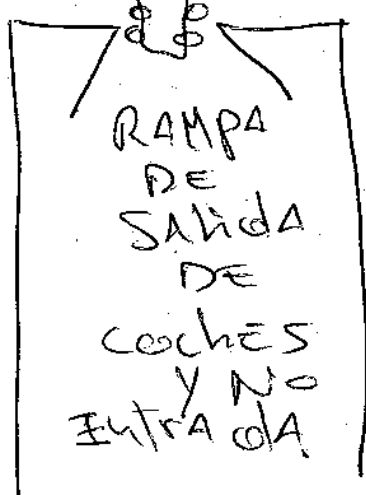 RAMPA
DE
SALidA
DE
cochES
Y NO
ENtrAdA